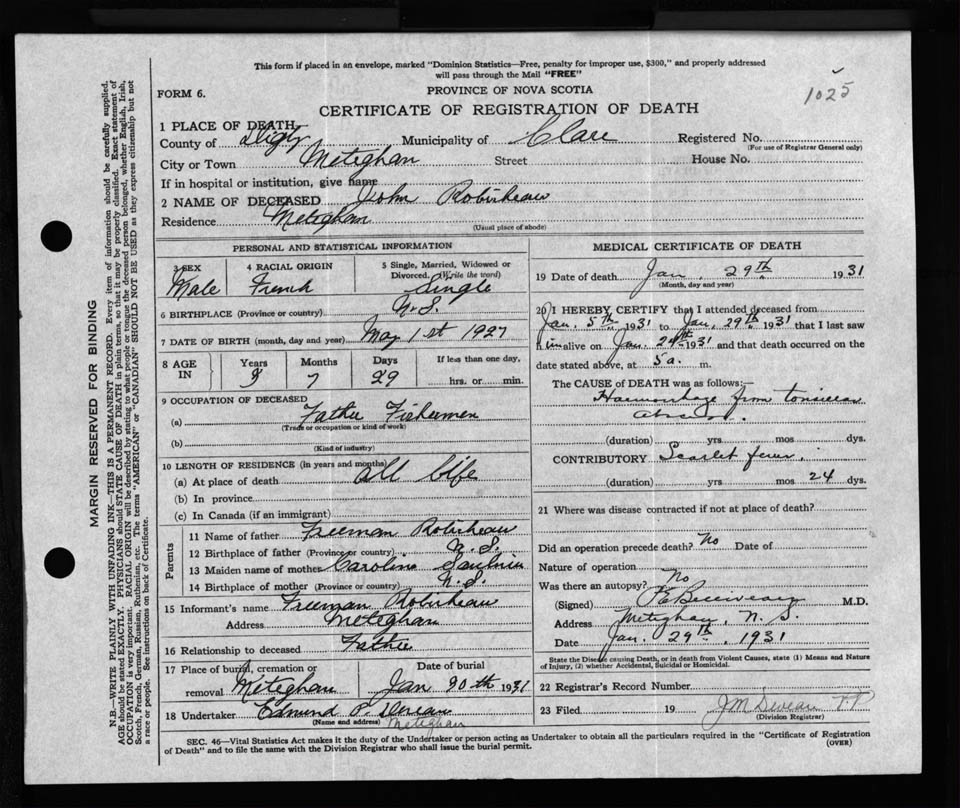 This form if placed in an envelope, marked "Dominion Statistics—Free, penalty for improper use, $300," and properly addressed
will pass through the Mail "FREE"
FORM 6.
PROVINCE OF NOVA SCOTIA
1025
CERTIFICATE OF REGISTRATION OF DEATH
1 PLACE OF DEATH
County of Digby Municipality of Clare Registered No.
(For use of Registrar General only)
City or Town Meteghan Street House No.
If in hospital or institution, give name
2 NAME OF DECEASED John Robicheau
Residence Meteghan
(Usual place of abode)
PERSONAL AND STATISTICAL INFORMATION
3 SEX 4 RACIAL ORIGIN 5 Single, Married, Widowed or
Divorced. (Write the word)
Male French Single
6 BIRTHPLACE (Province or country) N.S.
7 DATE OF BIRTH (month, day and year) May 1st 1927
8 AGE IN Years Months Days If less than one day,
3 7 29 hrs. or min.
9 OCCUPATION OF DECEASED
(a) Father Fishermen
(Trade or occupation or kind of work)
(b)
(Kind of industry)
10 LENGTH OF RESIDENCE (in years and months)
(a) At place of death All Life
(b) In province
(c) In Canada (if an immigrant)
Parents
11 Name of father Freeman Robicheau
12 Birthplace of father (Province or country) N.S.
13 Maiden name of mother Caroline
14 Birthplace of mother (Province or country) N.S.
15 Informant's name Freeman Robicheau
Address Meteghan
16 Relationship to deceased Father
17 Place of burial, cremation or removal Meteghan
Date of burial Jan 30th 1931
18 Undertaker Edmund P.
(Name and address) Meteghan
MEDICAL CERTIFICATE OF DEATH
19 Date of death Jan. 29th 1931
(Month, day and year)
20 I HEREBY CERTIFY that I attended deceased from
Jan. 5th 1931 to Jan. 29th 1931 that I last saw
him alive on Jan. 1931 and that death occurred on the
date stated above, at 5 a. m.
The CAUSE OF DEATH was as follows:—
Haemorrhage from tonsillar
abscess.
(duration) yrs mos dys.
CONTRIBUTORY Scarlet fever.
(duration) yrs mos 24 dys.
21 Where was disease contracted if not at place of death?
Did an operation precede death? No Date of
Nature of operation
Was there an autopsy? No
(Signed) M.D.
Address Meteghan, N.S.
Date Jan. 29th, 1931
State the Disease causing Death, or in death from Violent Causes, state (1) Means and Nature
of Injury, (2) whether Accidental, Suicidal or Homicidal.
22 Registrar's Record Number
23 Filed 19 J M Deveau
(Division Registrar)
SEC. 46—Vital Statistics Act makes it the duty of the Undertaker or person acting as Undertaker to obtain all the particulars required in the "Certificate of Registration
of Death" and to file the same with the Division Registrar who shall issue the burial permit.
(OVER)
MARGIN RESERVED FOR BINDING
N.B.—WRITE PLAINLY WITH UNFADING INK—THIS IS A PERMANENT RECORD. Every item of information should be carefully supplied.
AGE should be stated EXACTLY. PHYSICIANS should STATE CAUSE OF DEATH in plain terms, so that it may be properly classified. Exact statement of
OCCUPATION is very important. RACIAL ORIGIN will be described by stating to what people or race the deceased person belonged, whether English, Irish,
Scotch, French, German, Russian, Ruthenian, etc. The terms "AMERICAN" or "CANADIAN" SHOULD NOT BE USED as they express citizenship but not
a race or people. See instructions on back of Certificate.